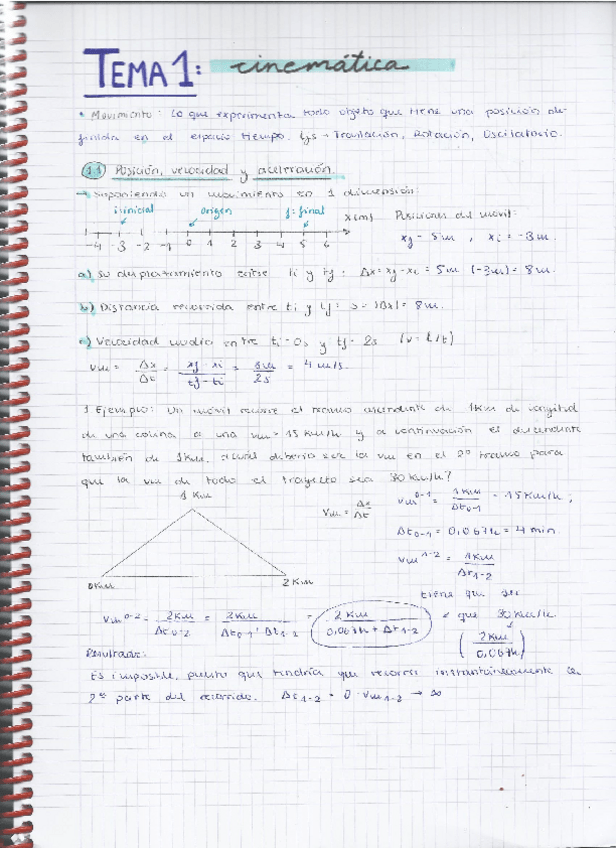 TEMA 1: cinemática
• Movimiento: Lo que experimenta todo objeto que tiene una posición de-
finida en el espacio tiempo. Ejs → Translación, Rotación, Oscilatorio.
1.1 Posición, velocidad y aceleración.
→ Suponiendo un movimiento en 1 dimensión:
i: inicial origen f: final x(m) Posiciones del móvil:
-4 -3 -2 -1 0 1 2 3 4 5 6
xf = 5m, xi = -3m.
a) Su desplazamiento entre ti y tf: Δx = xf - xi = 5m (-3m) = 8m.
b) Distancia recorrida entre ti y tf: s = |Δx| = 8m.
c) Velocidad media entre ti = 0s y tf = 2s (v = L/t)
vm = Δx/Δt = xf - xi/tf - ti = 8m/2s = 4 m/s.
1 Ejemplo: Un móvil recorre el tramo ascendente de 1km de longitud
de una colina a una vm = 15 km/h y a continuación el descendente
también de 1km, cuál debería ser la vm en el 2º tramo para
que la vm de todo el trayecto sea 30 km/h?
1 Km
0Km
2 Km
vm = Δx/Δt
vm⁰⁻¹ = 1km/Δt0-1 = 15km/h;
Δt0-1 = 0,067h = 4 min
vm¹⁻² = 1km/Δt1-2
tiene que ser
vm⁰⁻² = 2km/Δt0-2 = 2km/Δt0-1 + Δt1-2 = 2km/0,067h + Δt1-2
que 30km/h
(2km/0,067h)
Resultado:
Es imposible, puesto que tendría que recorrer instantáneamente la
2ª parte del recorrido. Δt1-2 = 0 · vm1-2 → ∞